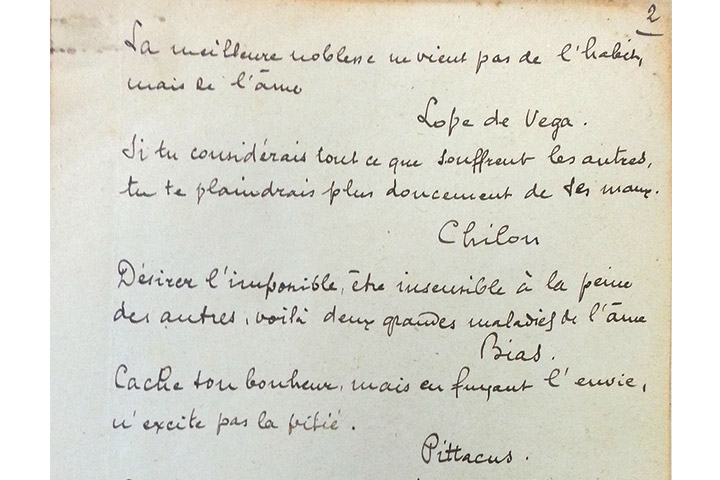 2
La meilleure noblesse ne vient pas de l'habit,
mais de l'âme
Lope de Vega.
Si tu considérais tout ce que souffrent les autres,
tu te plaindrais plus doucement de tes maux.
Chilon
Désirer l'impossible, être insensible à la peine
des autres, voilà deux grandes maladies de l'âme
Bias.
Cache ton bonheur, mais en fuyant l'envie,
n'excite pas la pitié.
Pittacus.